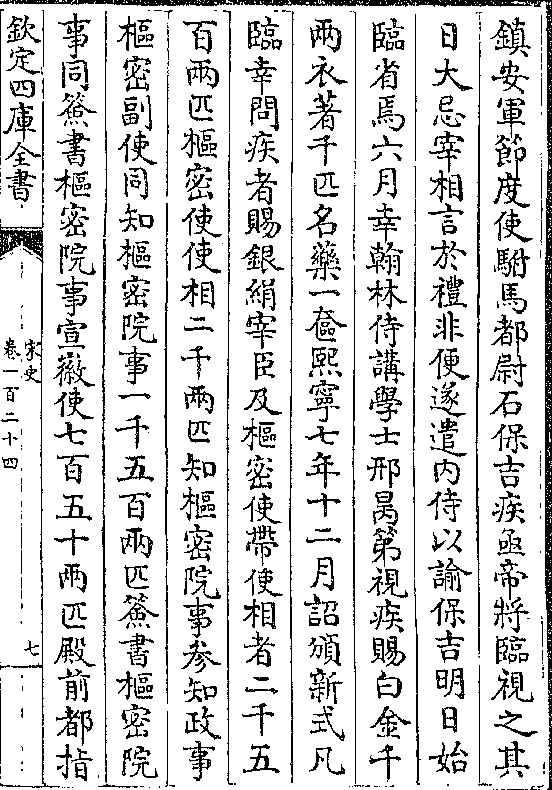 鎮安軍節度使駙馬都尉石保吉疾亟帝將臨視之其
日大忌宰相言於禮非便遂遣内侍以諭保吉明日始
臨省焉六月幸翰林侍講學士邢昺第視疾賜白金千
兩衣著千匹名藥一奩熙寧七年十二月詔頒新式凡
臨幸問疾者賜銀絹宰臣及樞密使帶使相者二千五
百兩匹樞密使使相二千兩匹知樞密院事參知政事
樞密副使同知樞密院事一千五百兩匹簽書樞密院
事同簽書樞密院事宣徽使七百五十兩匹殿前都指
欽定四庫全書
宋史
卷一百二十四
七